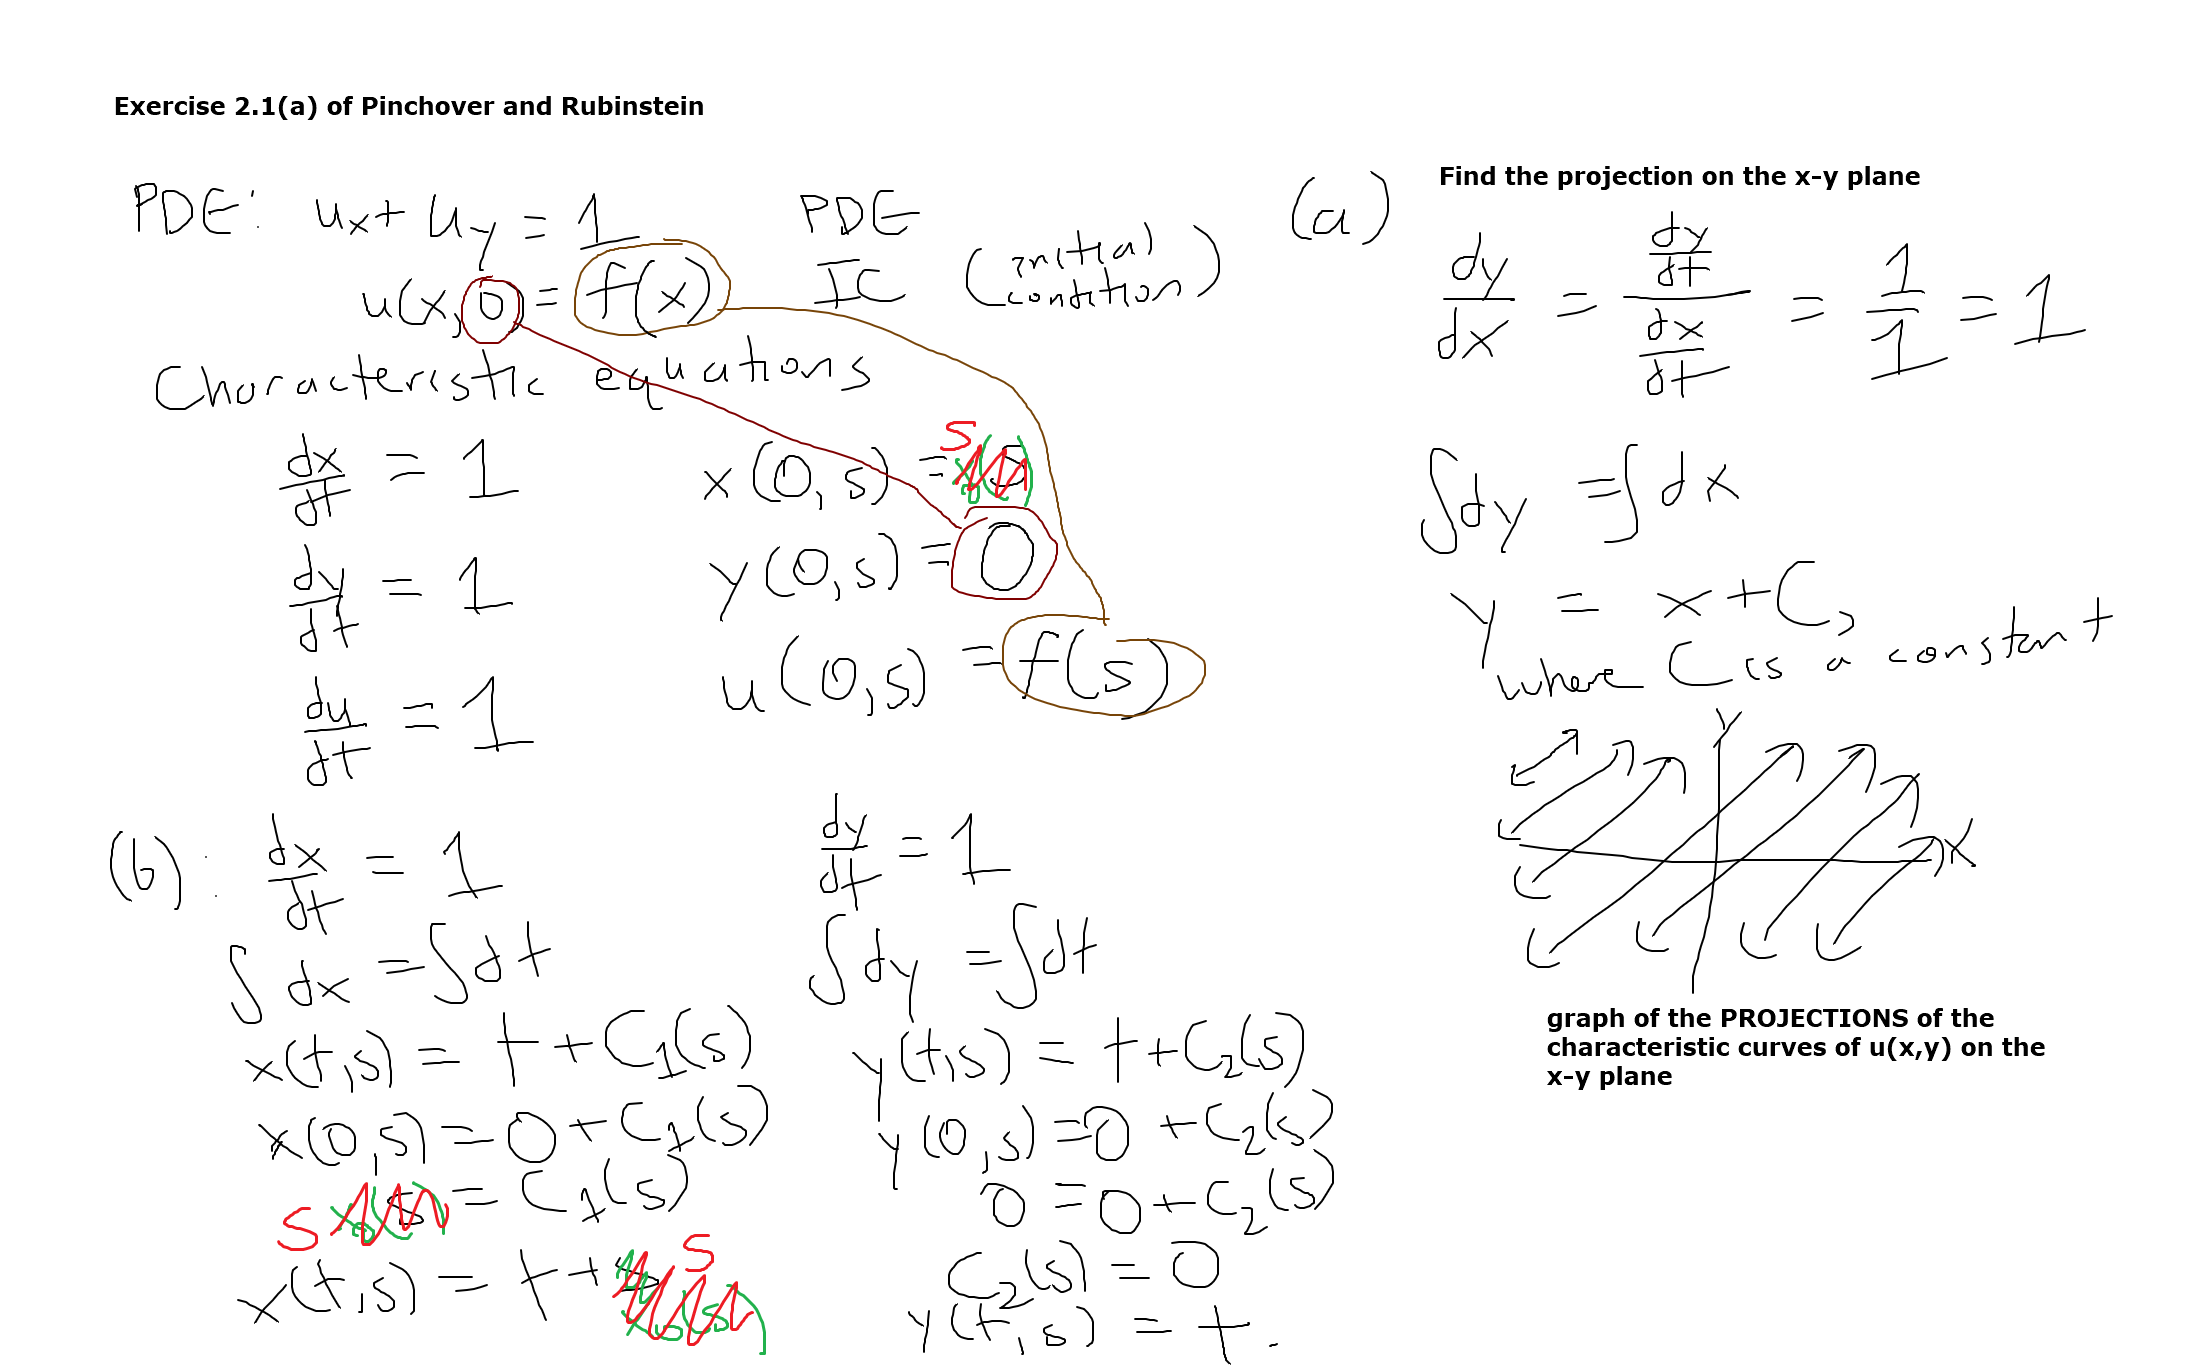 Exercise 2.1(a) of Pinchover and Rubinstein
PDE: u_x + u_y = 1 PDE
u(x, 0) = f(x) IC (initial condition)
Characteristic equations
dx/dt = 1 x(0,s) = s
dy/dt = 1 y(0,s) = 0
du/dt = 1 u(0,s) = f(s)
(a) Find the projection on the x-y plane
dy/dx = (dy/dt)/(dx/dt) = 1/1 = 1
∫dy = ∫dx
y = x + C,
where C is a constant
y
x
graph of the PROJECTIONS of the
characteristic curves of u(x,y) on the
x-y plane
(b): dx/dt = 1
∫dx = ∫dt
x(t,s) = t + C_1(s)
x(0,s) = 0 + C_1(s)
s = C_1(s)
x(t,s) = t + s
dy/dt = 1
∫dy = ∫dt
y(t,s) = t + C_2(s)
y(0,s) = 0 + C_2(s)
0 = 0 + C_2(s)
C_2(s) = 0
y(t,s) = t.